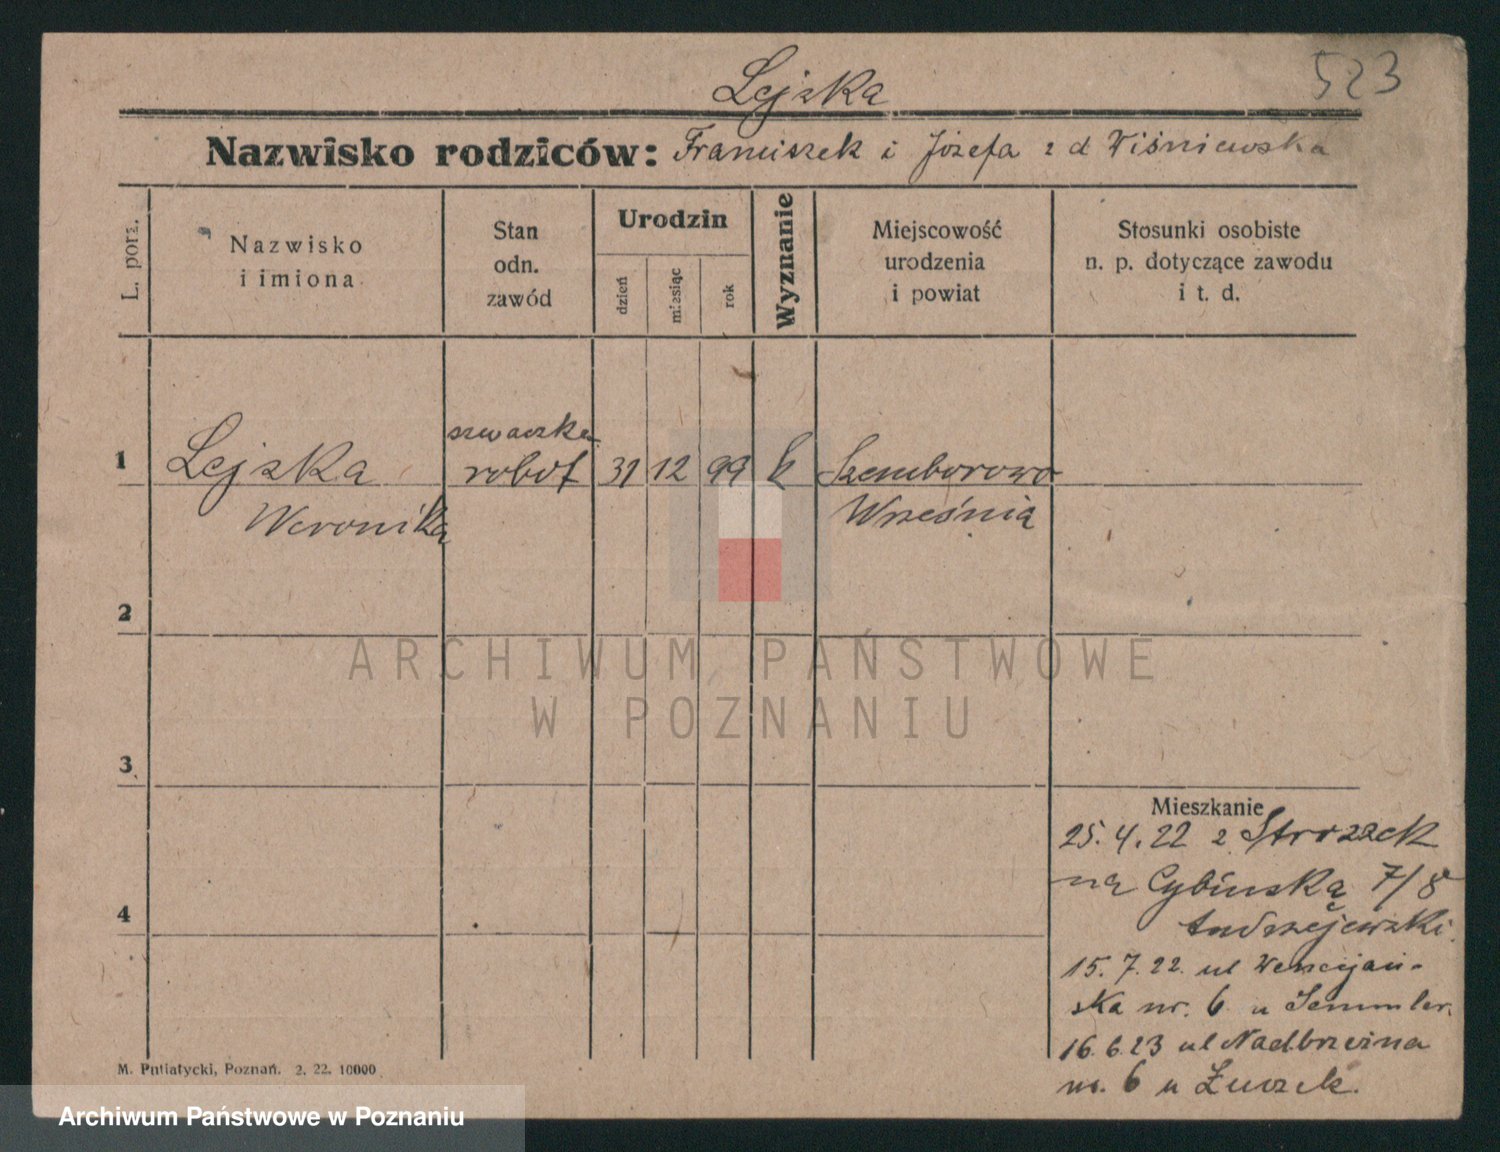 523
Lejzka
Nazwisko rodziców: Franciszek i Józefa z d Wiśniewska
L. porz.
Nazwisko
i imiona
Stan
odn.
zawód
Urodzin
dzień
miesiąc
rok
Wyznanie
Miejscowość
urodzenia
i powiat
Stosunki osobiste
n. p. dotyczące zawodu
i t. d.
szwaczka
1 Lejzka robot 31 12 99 k Szemborowo
Weronika Września
2
3
4
Mieszkanie
25.4.22 z Strozzek
na Cybińską 7/8
Andrzejewski.
15.7.22. ul Wenecjań-
ska nr. 6 u Semmler.
16.6.23 ul Nadbrzeżna
nr. 6 u Żuczek.
M. Putiatycki, Poznań. 2. 22. 10000
ARCHIWUM PAŃSTWOWE
W POZNANIU
Archiwum Państwowe w Poznaniu